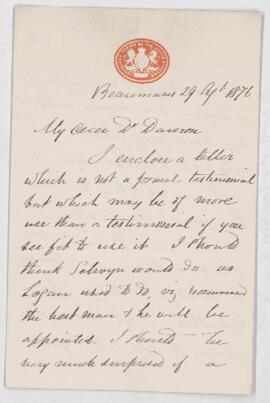 Beaumaris 29 Agt 1876
My dear Dr Dawson
I enclose a letter
which is not a formal testimonial
but which may be of more
use than a testimonial if you
see fit to use it I should
think Selwyn would do as
Logan used to do, viz recommend
the best man & he will be
appointed. I should be
very much surprised if a